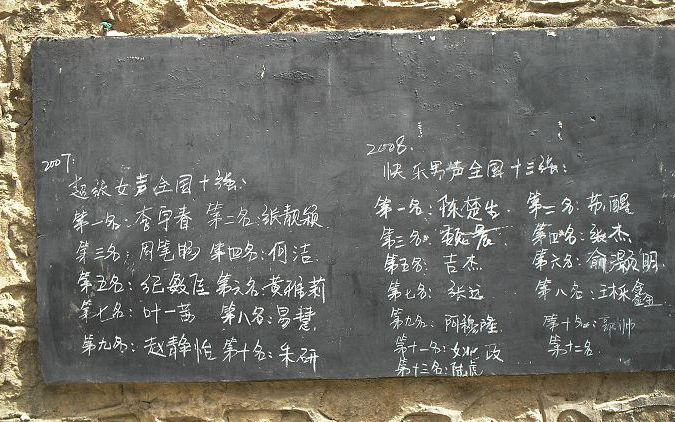 2007:
超级女声全国十强:
第一名:李宇春 第二名:张靓颖
第三名:周笔畅 第四名:何洁
第五名:纪敏佳 第六名:黄雅莉
第七名:叶一茜 第八名:易慧
第九名:赵静怡 第十名:朱研
2008.
快乐男声全国十三强:
第一名:陈楚生 第二名:苏醒
第三名: 第四名:张杰
第五名:吉杰 第六名:俞灏明
第七名:张远 第八名:王栎鑫
第九名:阿穆隆 第十名:郭帅
第十一名:姚政 第十二名
第十三名:陆虎